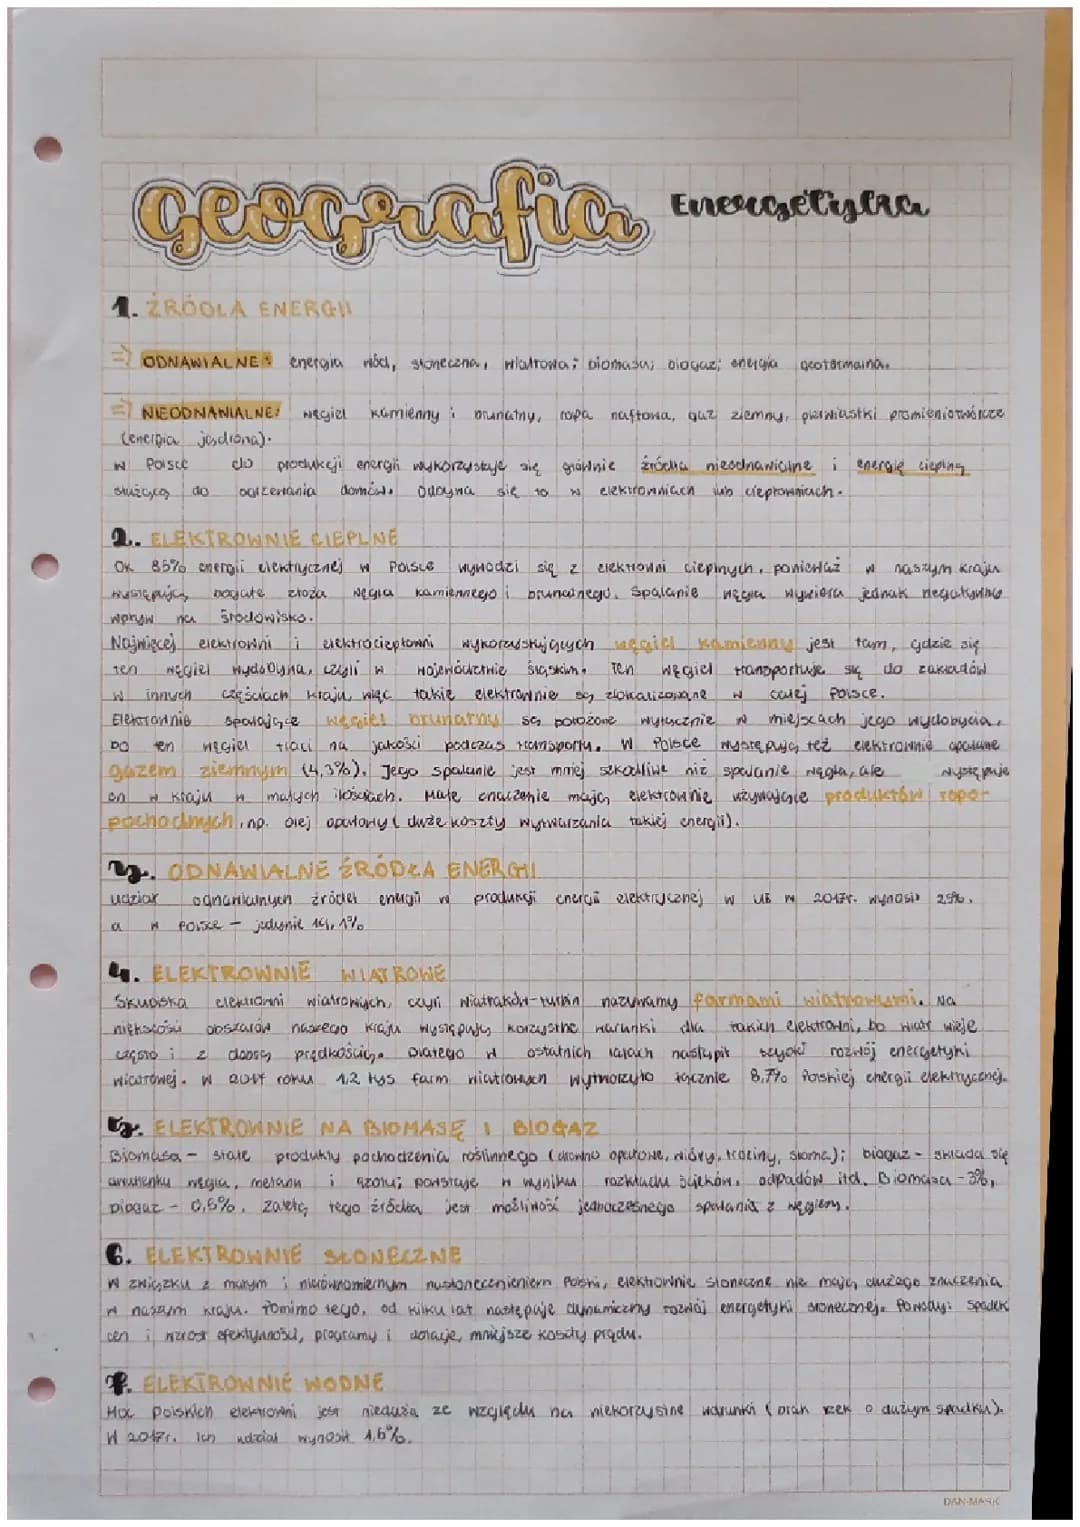 geografia Energetyka
1. ŹRÓDŁA ENERGII
=> ODNAWIALNE: energia wód, słoneczna, wiatrowa; biomasa; biogaz; energia geotermalna.
=> NIEODNAWIALNE: węgiel kamienny i brunatny, ropa naftowa, gaz ziemny, pierwiastki promieniotwórcze
(energia jądrowa).
W Polsce do produkcji energii wykorzystuje się głównie źródła nieodnawialne i energię cieplną
służącą do ogrzewania domów. Odbywa się to w elektrowniach lub ciepłowniach.
2. ELEKTROWNIE CIEPLNE
Ok 85% energii elektrycznej w Polsce wywodzi się z elektrowni cieplnych, ponieważ w naszym kraju
występują bogate złoża węgla kamiennego i brunatnego. Spalanie węgla wywiera jednak negatywny
wpływ na środowisko.
Najwięcej elektrowni i elektrociepłowni wykorzystujących węgiel kamienny jest tam, gdzie się
ten węgiel wydobywa, czyli w województwie śląskim. Ten węgiel transportuje się do zakładów
w innych częściach kraju, więc takie elektrownie są zlokalizowane w całej Polsce.
Elektrownie spalające węgiel brunatny są położone wyłącznie w miejscach jego wydobycia,
bo ten węgiel traci na jakości podczas transportu. W Polsce występują też elektrownie opalane
gazem ziemnym (4,3%). Jego spalanie jest mniej szkodliwe niż spalanie węgla, ale występuje
on w kraju w małych ilościach. Małe znaczenie mają elektrownie używające produktów ropo-
pochodnych, np. olej opałowy (duże koszty wytwarzania takiej energii).
3. ODNAWIALNE ŹRÓDŁA ENERGII
Udział odnawialnych źródeł energii w produkcji energii elektrycznej w UE w 2017r. wynosił 29%,
a w Polsce - jedynie 14,1%
4. ELEKTROWNIE WIATROWE
Skupiska elektrowni wiatrowych, czyli wiatraków-turbin nazywamy farmami wiatrowymi. Na
większości obszarów naszego kraju występują korzystne warunki dla takich elektrowni, bo wiatr wieje
często i z dobrą prędkością. Dlatego w ostatnich latach nastąpił szybki rozwój energetyki
wiatrowej. W 2017 roku 1,2 tys farm wiatrowych wytworzyło łącznie 8,7% Polskiej energii elektrycznej.
5. ELEKTROWNIE NA BIOMASĘ I BIOGAZ
Biomasa - stałe produkty pochodzenia roślinnego (drewno opałowe, wióry, trociny, słoma); biogaz - składa się
dwutlenku węgla, metanu i azotu; powstaje w wyniku rozkładu ścieków, odpadów itd. Biomasa - 3%,
biogaz - 0,6%. Zaletą tego źródła jest możliwość jednoczesnego spalania z węglem.
6. ELEKTROWNIE SŁONECZNE
W związku z małym i nierównomiernym nasłonecznieniem Polski, elektrownie słoneczne nie mają dużego znaczenia
w naszym kraju. Pomimo tego, od kilku lat następuje dynamiczny rozwój energetyki słonecznej. Powody: spadek
cen i wzrost efektywności, programy i dotacje, mniejsze koszty prądu.
7. ELEKTROWNIE WODNE
Moc Polskich elektrowni jest nieduża ze względu na niekorzystne warunki (brak rzek o dużym spadku).
W 2017r. ich udział wynosił 1,6%.
DAN-MARK